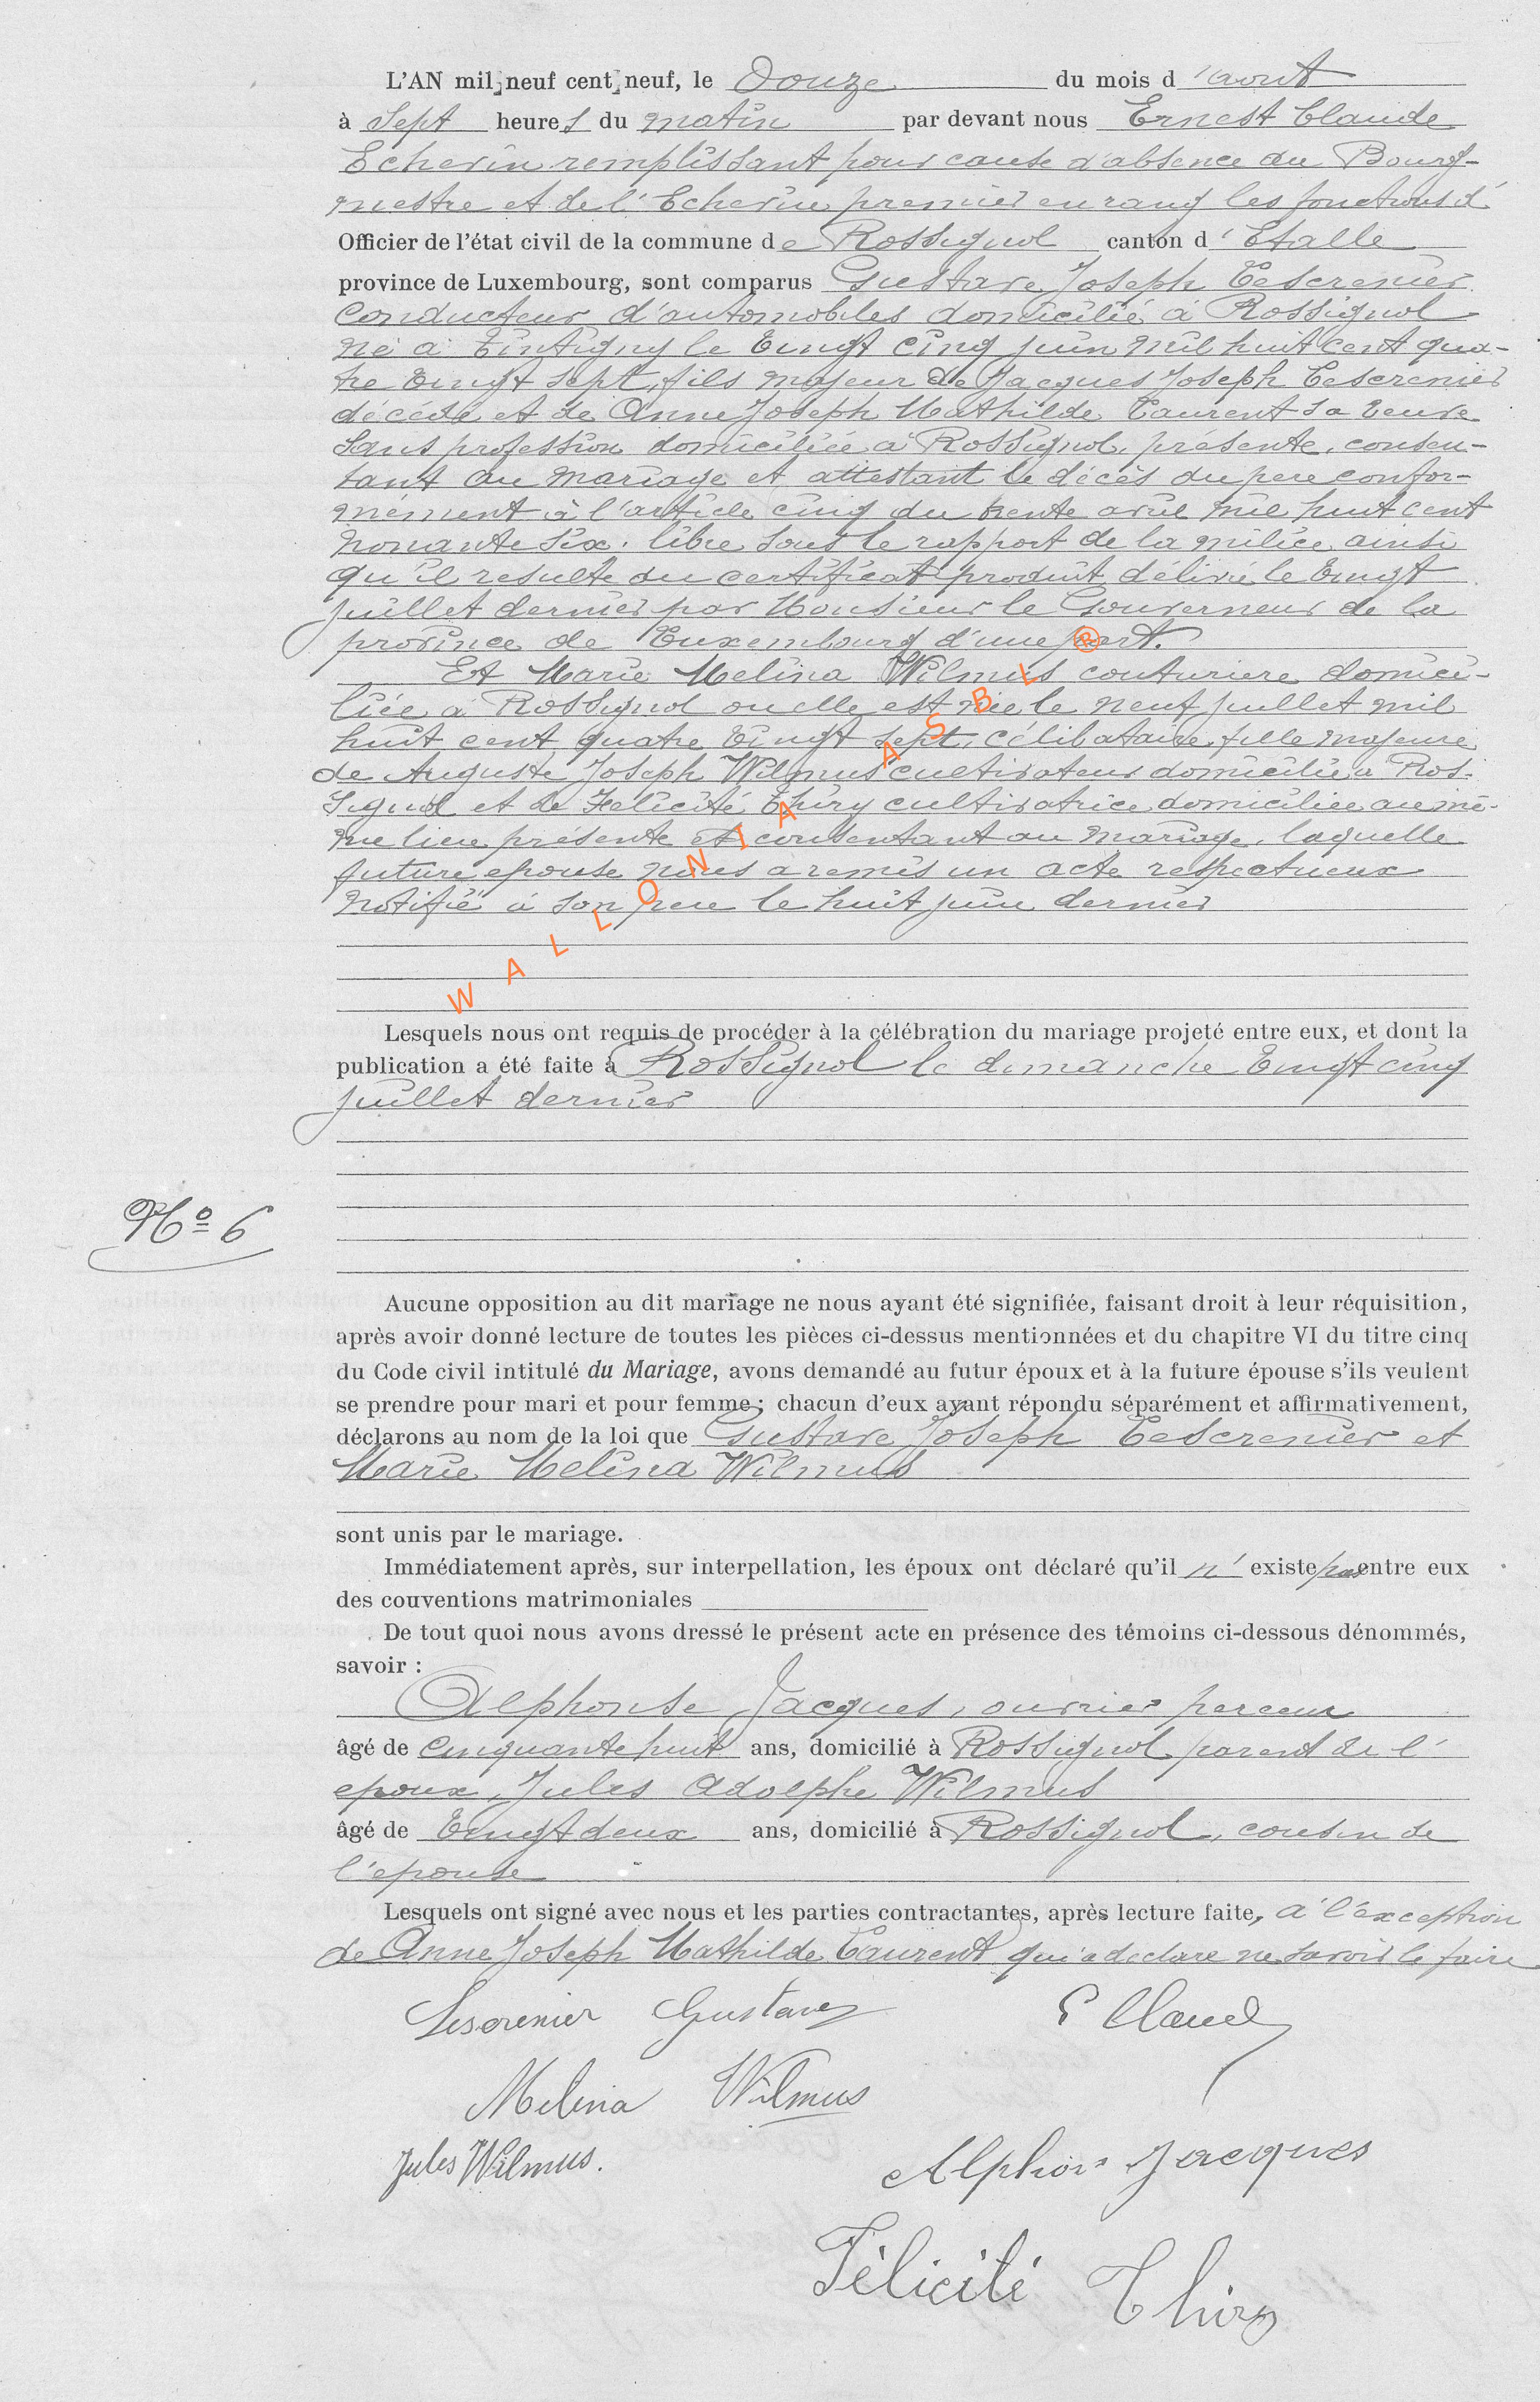 L'AN mil neuf cent neuf, le Douze du mois d'aout
à Sept heures du matin par devant nous Ernest Claude
Echevin remplissant pour cause d'absence du Bourg-
mestre et de l'Echevin premier en rang les fonctions d'
Officier de l'état civil de la commune de Rossignol canton d'Etalle
province de Luxembourg, sont comparus Gustave Joseph Lescrenier
Conducteur d'automobiles domicilié à Rossignol
né à Tintigny le Vingt cinq juin mil huit cent qua-
tre Vingt sept, fils majeur de Jacques Joseph Lescrenier
décédé et de Anne Joseph Mathilde Laurent sa veuve
sans profession domiciliée à Rossignol, présente, consen-
tant au mariage et attestant le décès du pere confor-
mément à l'article cinq du trente avril mil huit cent
nonante six. libre sous le rapport de la milice ainsi
qu'il resulte du certificat produit délivré le Vingt
juillet dernier par Monsieur le Gouverneur de la
province de Luxembourg d'une part.
Et Marie Melina Wilmus couturiere domici-
liée à Rossignol ou elle est née le neuf juillet mil
huit cent quatre Vingt sept, célibataire, fille majeure
de Auguste Joseph Wilmus cultivateur domicilié à Ros-
signol et de Félicité Thiry cultivatrice domiciliée au mê-
me lieu présente et consentant au mariage, laquelle
future epouse nous a remis un acte respectueux
notifié à son pere le huit juin dernier
WALLONIA ASBL ®
Lesquels nous ont requis de procéder à la célébration du mariage projeté entre eux, et dont la
publication a été faite à Rossignol le dimanche Vingt cinq
juillet dernier
No 6
Aucune opposition au dit mariage ne nous ayant été signifiée, faisant droit à leur réquisition,
après avoir donné lecture de toutes les pièces ci-dessus mentionnées et du chapitre VI du titre cinq
du Code civil intitulé du Mariage, avons demandé au futur époux et à la future épouse s'ils veulent
se prendre pour mari et pour femme; chacun d'eux ayant répondu séparément et affirmativement,
déclarons au nom de la loi que Gustave Joseph Lescrenier et
Marie Melina Wilmus
sont unis par le mariage.
Immédiatement après, sur interpellation, les époux ont déclaré qu'il n'existe pas entre eux
des conventions matrimoniales
De tout quoi nous avons dressé le présent acte en présence des témoins ci-dessous dénommés,
savoir :
Alphonse Jacques, ouvrier perceur
âgé de Cinquante huit ans, domicilié à Rossignol parent de l'
epoux, Jules Adolphe Wilmus
âgé de Vingt deux ans, domicilié à Rossignol, cousin de
l'epouse
Lesquels ont signé avec nous et les parties contractantes, après lecture faite, à l'exception
de Anne Joseph Mathilde Laurent qui a declare ne savoir le faire
Lescrenier Gustave E Claude
Melina Wilmus
Jules Wilmus. Alphons Jacques
Félicité Thiry